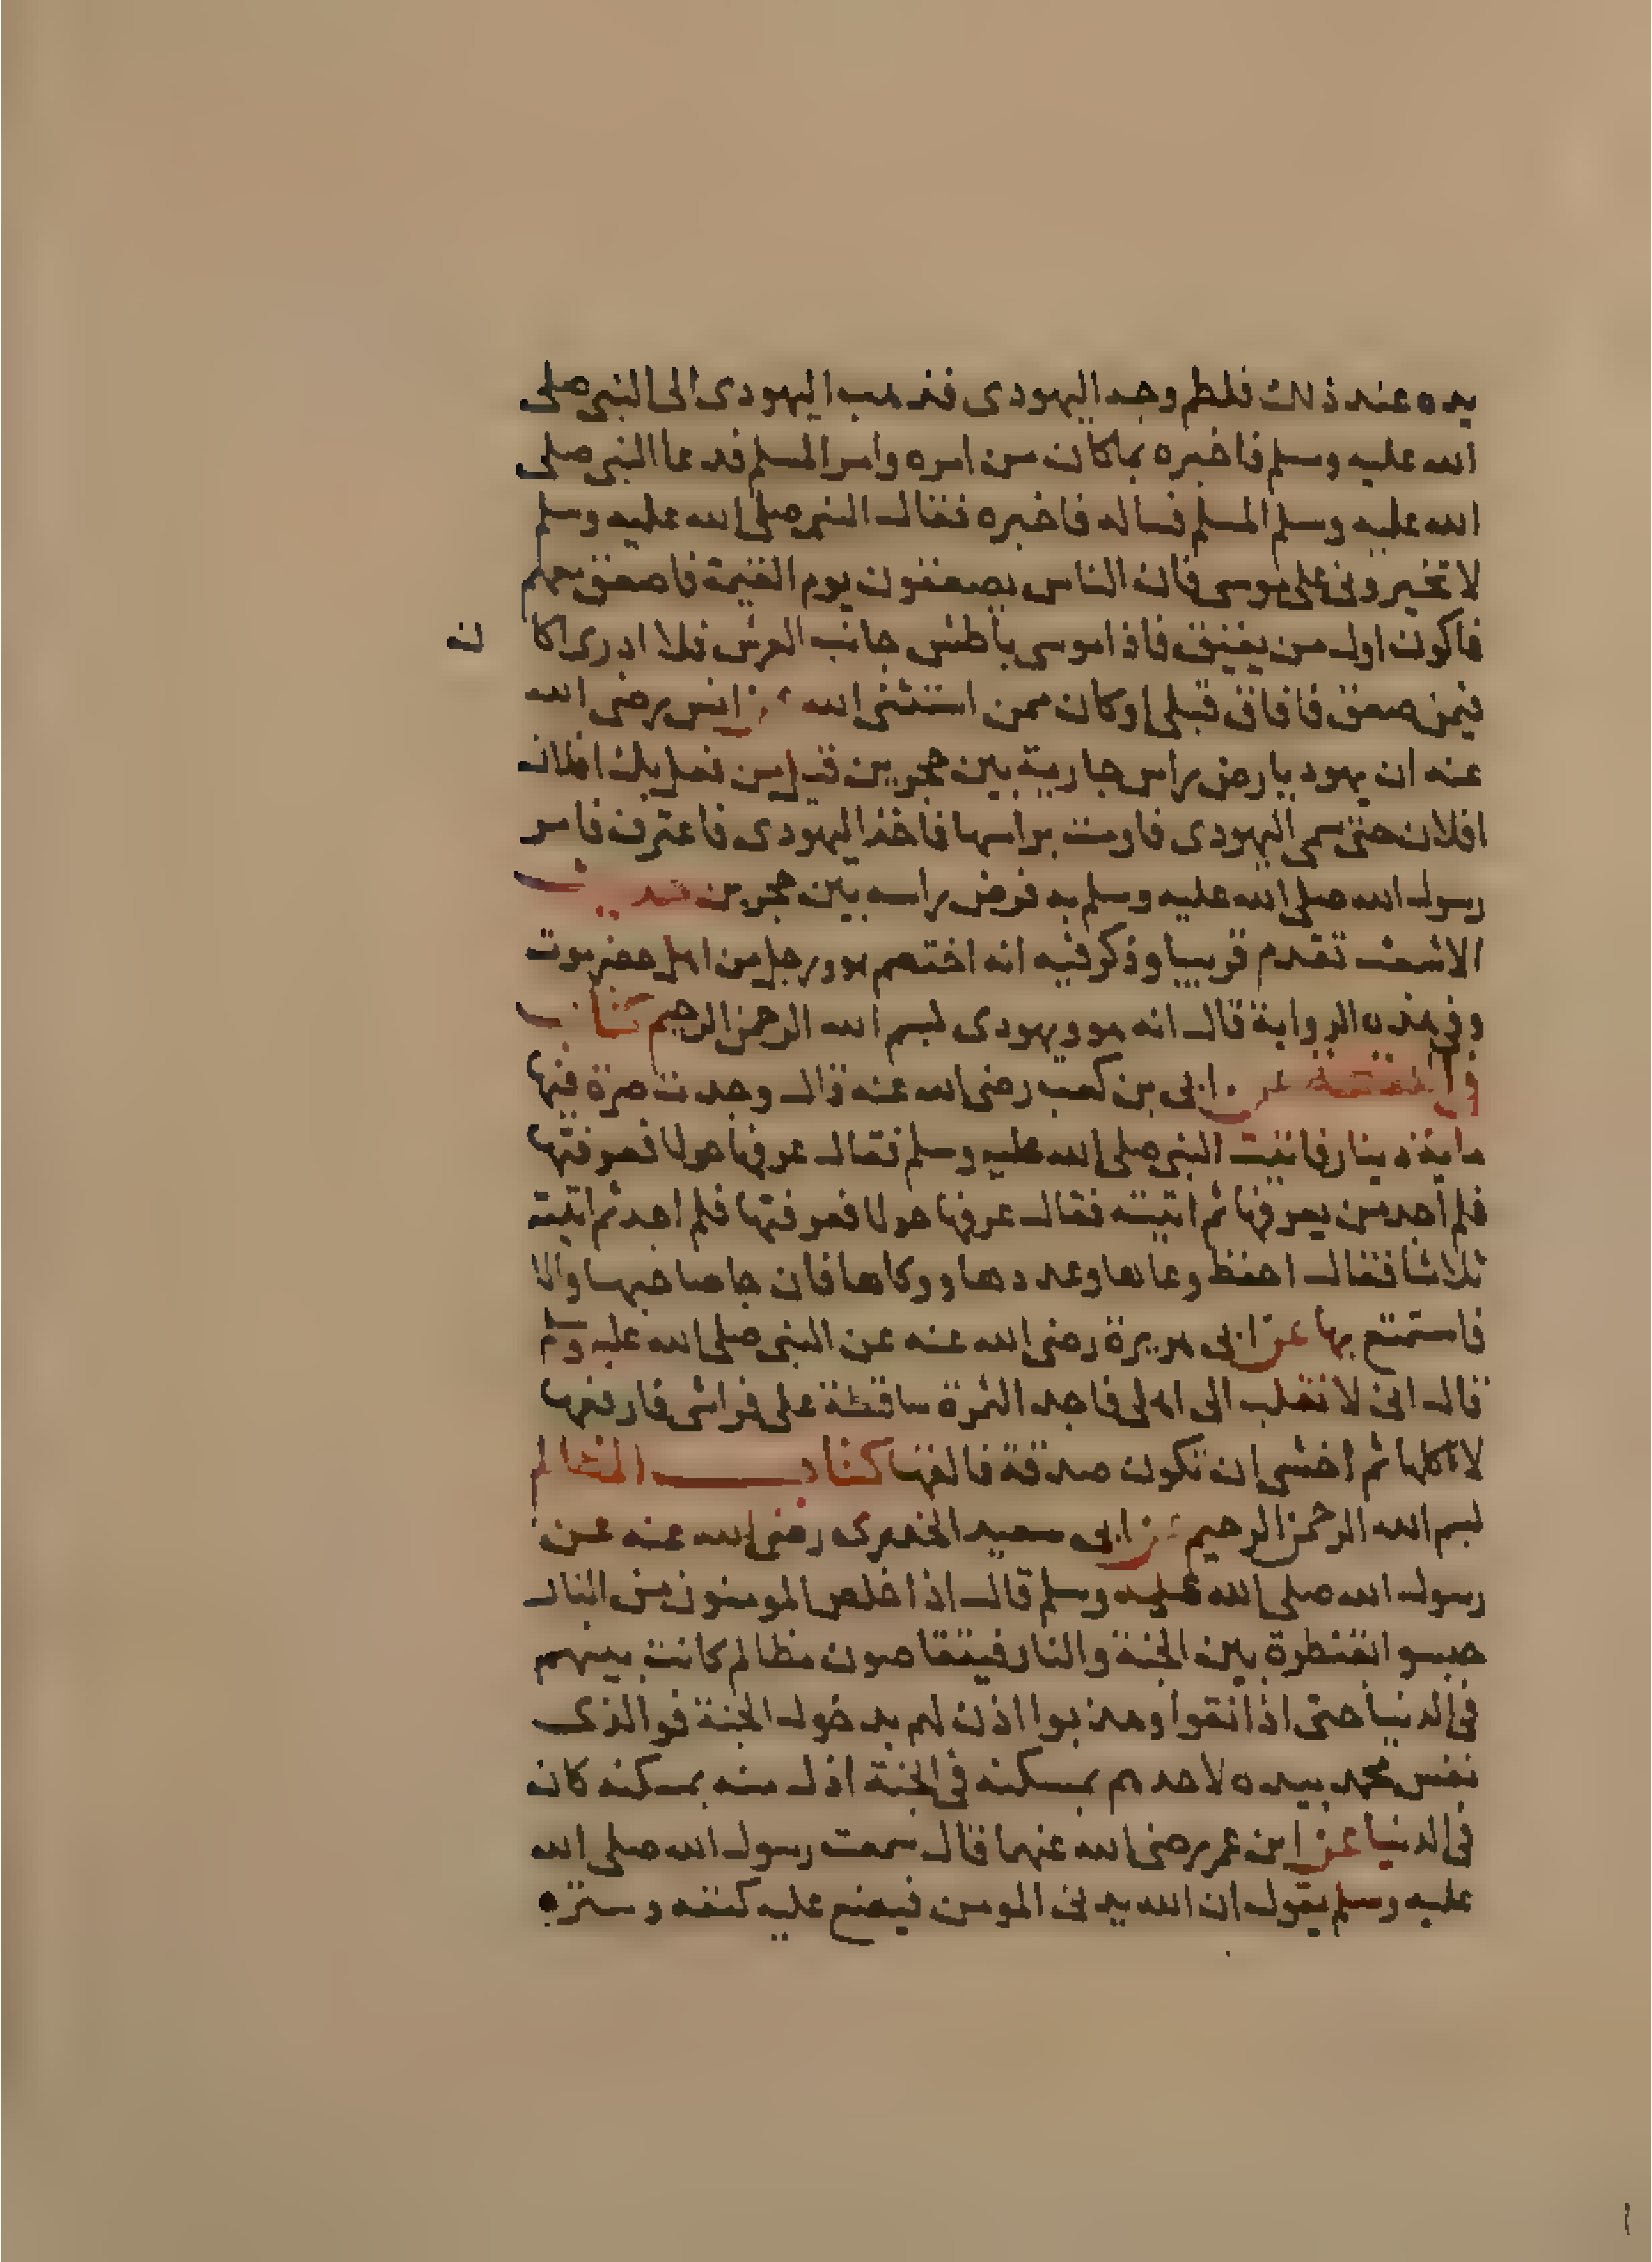 يده عند ذلك فلطم وجه اليهودى فذهب اليهودى الى النبي صلى
الله عليه وسلم فاخبره بما كان من امره وامر المسلم فدعا النبي صلى
الله عليه وسلم المسلم فساله فاخبره فقال النبي صلى الله عليه وسلم
لا تخيرونى على موسى فان الناس يصعقون يوم القيمة فاصعق معهم
فاكون اول من يفيق فاذا موسى باطش جانب العرش فلا ادرى اكان
فيمن صعق فافاق قبلى او كان ممن استثنى الله عن انس رضى الله
عنه ان يهوديا رض راس جارية بين حجرين قيل من فعل بك افلان
افلان حتى سمى اليهودى فاومت براسها فاخذ اليهودى فاعترف فامر
رسول الله صلى الله عليه وسلم به فرض راسه بين حجرين حديث
الاشعث تقدم قريبا وذكر فيه انه اختصم هو ورجل من اهل حضرموت
وفى هذه الرواية قال انه هو ويهودى بسم الله الرحمن الرحيم كتاب
فى اللقطة عن ابى بن كعب رضى الله عنه قال وجدت صرة فيها
ماية دينار فاتيت النبي صلى الله عليه وسلم فقال عرفها حولا فعرفتها
فلم اجد من يعرفها ثم اتيته فقال عرفها حولا فعرفتها فلم اجد ثم اتيته
ثلاثا فقال احفظ وعاها وعددها ووكاها فان جا صاحبها والا
فاستمتع بها عن ابى هريرة رضى الله عنه عن النبي صلى الله عليه وسلم
قال انى لانقلب الى اهلى فاجد التمرة ساقطة على فراشى فارفعها
لاكلها ثم اخشى ان تكون صدقة فالقيها كتاب المظالم
بسم الله الرحمن الرحيم عن ابى سعيد الخدرى رضى الله عنه عن
رسول الله صلى الله عليه وسلم قال اذا خلص المومنون من النار
حبسوا بقنطرة بين الجنة والنار فيتقاصون مظالم كانت بينهم
فى الدنيا حتى اذا نقوا وهذبوا اذن لهم بدخول الجنة فوالذى
نفس محمد بيده لاحدهم بمسكنه فى الجنة ادل منه بمسكنه كان
فى الدنيا عن ابن عمر رضى الله عنهما قال سمعت رسول الله صلى الله
عليه وسلم يقول ان الله يدنى المومن فيضع عليه كنفه وستره